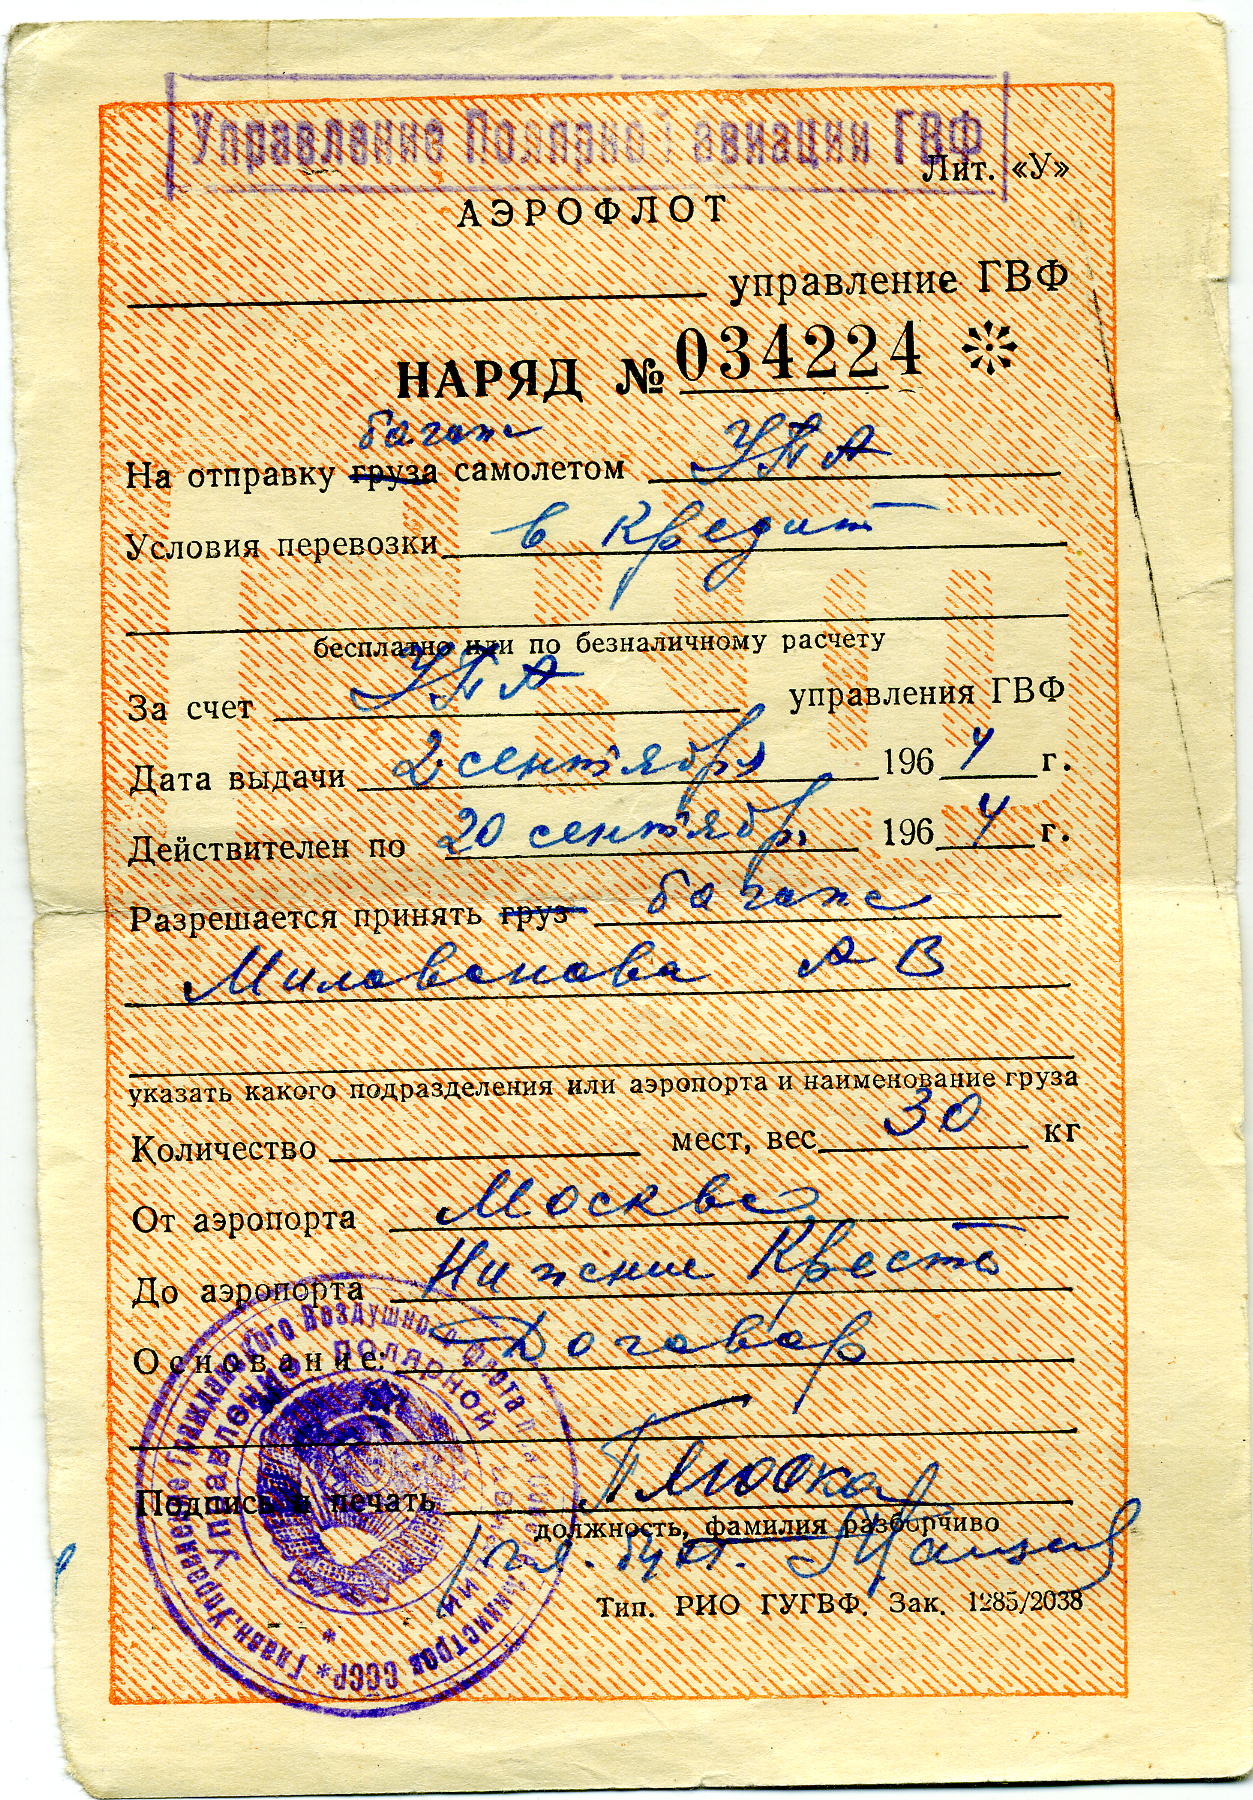 Управление Полярной авиации ГВФ
Лит. «У»
АЭРОФЛОТ
управление ГВФ
НАРЯД № 034224
багаж
На отправку груза самолетом УПА
Условия перевозки в кредит
бесплатно или по безналичному расчету
За счет УПА управления ГВФ
Дата выдачи 2 сентября 1964 г.
Действителен по 20 сентября 1964 г.
Разрешается принять груз багаж
Милованова А В
указать какого подразделения или аэропорта и наименование груза
Количество мест, вес 30 кг
От аэропорта Москва
До аэропорта Нижние Кресты
Основание: Договор
Подпись и печать
должность, фамилия разборчиво
Тип. РИО ГУГВФ. Зак. 1285/2038
Главн. Управление Гражданского Воздушного Флота при Совете Министров СССР
Управление Полярной авиации